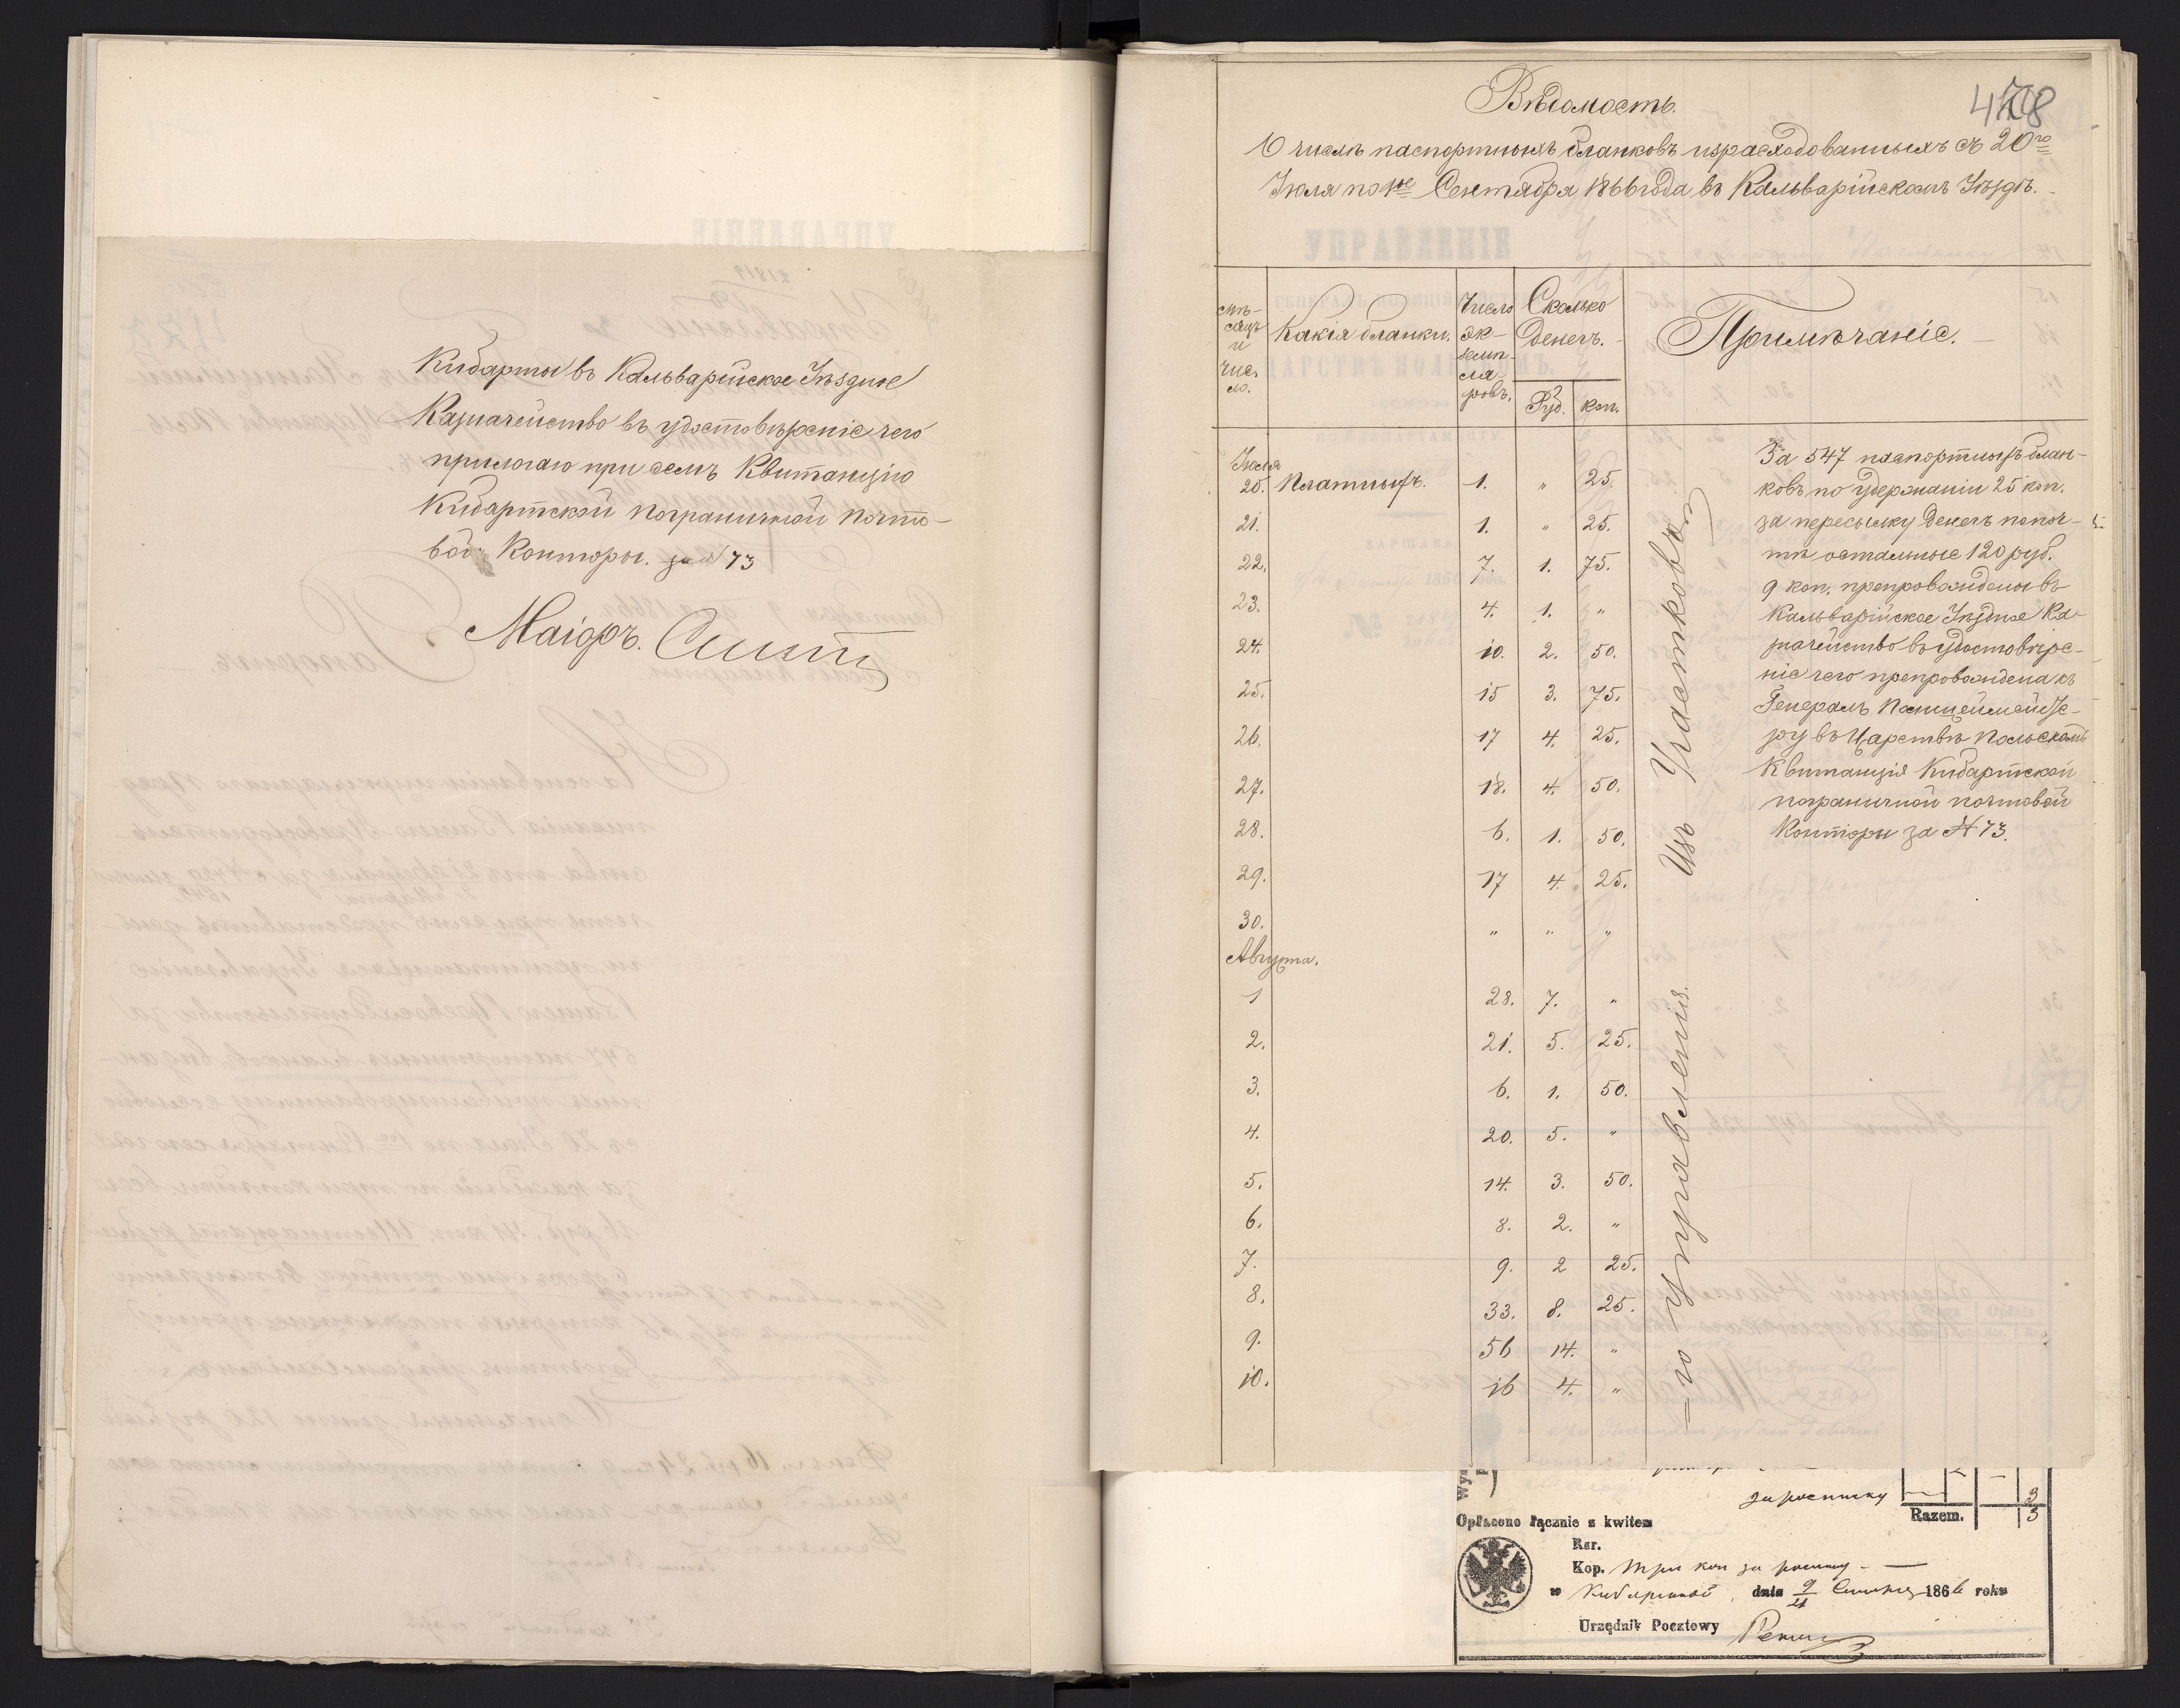 Кибарты въ Кальварійское Уѣздное
Казначейство въ удостовѣреніе чего
прилогаю при семъ Квитанцію
Кибартской пограничной почто-
вой Конторы. за № 73
Маіоръ.
478
Вѣдомость.
О числѣ паспортныхъ бланковъ израсходованныхъ съ 20го
Іюля по 1ое Сентября 1866 года въ Кальварійскомъ Уѣздѣ.
Мѣ-
сяцъ
и
чис-
ло.
Какія бланки.
Число
эк-
земп-
ля-
ровъ.
Сколько
Денегъ.
Руб. коп.
Примѣчаніе.
Іюля
20. Платныхъ. 1. " 25.
21. 1. " 25.
22. 7. 1. 75.
23. 4. 1. "
24. 10. 2. 50.
25. 15 3. 75.
26. 17 4. 25.
27. 18. 4. 50.
28. 6. 1. 50.
29. 17 4. 25.
30. " " "
Августа.
1 28. 7. "
2. 21. 5. 25.
3. 6. 1. 50.
4. 20. 5. "
5. 14. 3. 50.
6. 8. 2. "
7. 9. 2 25.
8. 33. 8. 25.
9. 56 14. "
10. 16 4. "
Изъ Участковъ
го управленія.
За 547 паспортныхъ блан-
ковъ по удержаніи 25 коп.
за пересылку Денегъ по поч-
тѣ остальные 120 руб.
9 коп. препровождены въ
Кальварійское Уѣздное Ка-
значейство въ удостовѣре-
ніе чего препровождена къ
Генералъ Полицеймейсте-
ру въ Царствѣ Польскомъ
Квитанція Кибартской
пограничной почтовой
Конторы за № 73.
за росписку 3
Razem. 3
Opłacono łącznie z kwitem
Rsr.
Kop. Три коп за росписку
w Кибартской dnia 9/21 1866 roku
Urzędnik Pocztowy